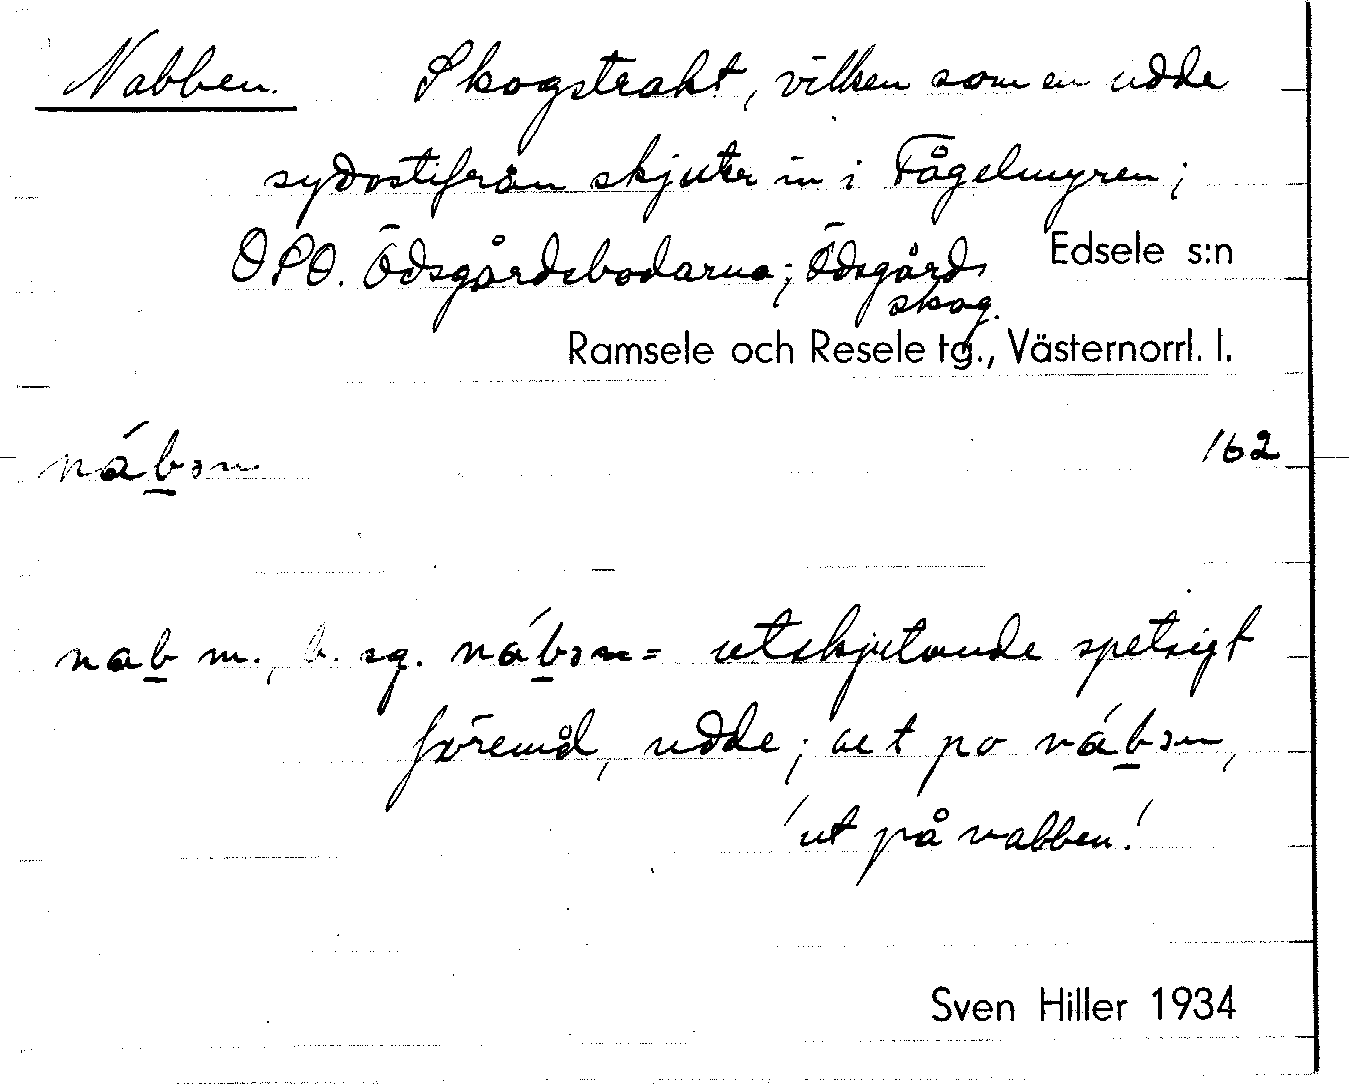 Nabben. Skogstrakt, vilken som en udde
sydostifrån skjuter in i Fågelmyren;
OSO. Ödsgårdsbodarna; Ödsgårds Edsele s:n
skog.
Ramsele och Resele tg., Västernorrl. l.
nábən 162
nab m., b. sg. nábən = utskjutande spetsigt
föremål, udde; ut po nábən,
'ut på nabben.'
Sven Hiller 1934